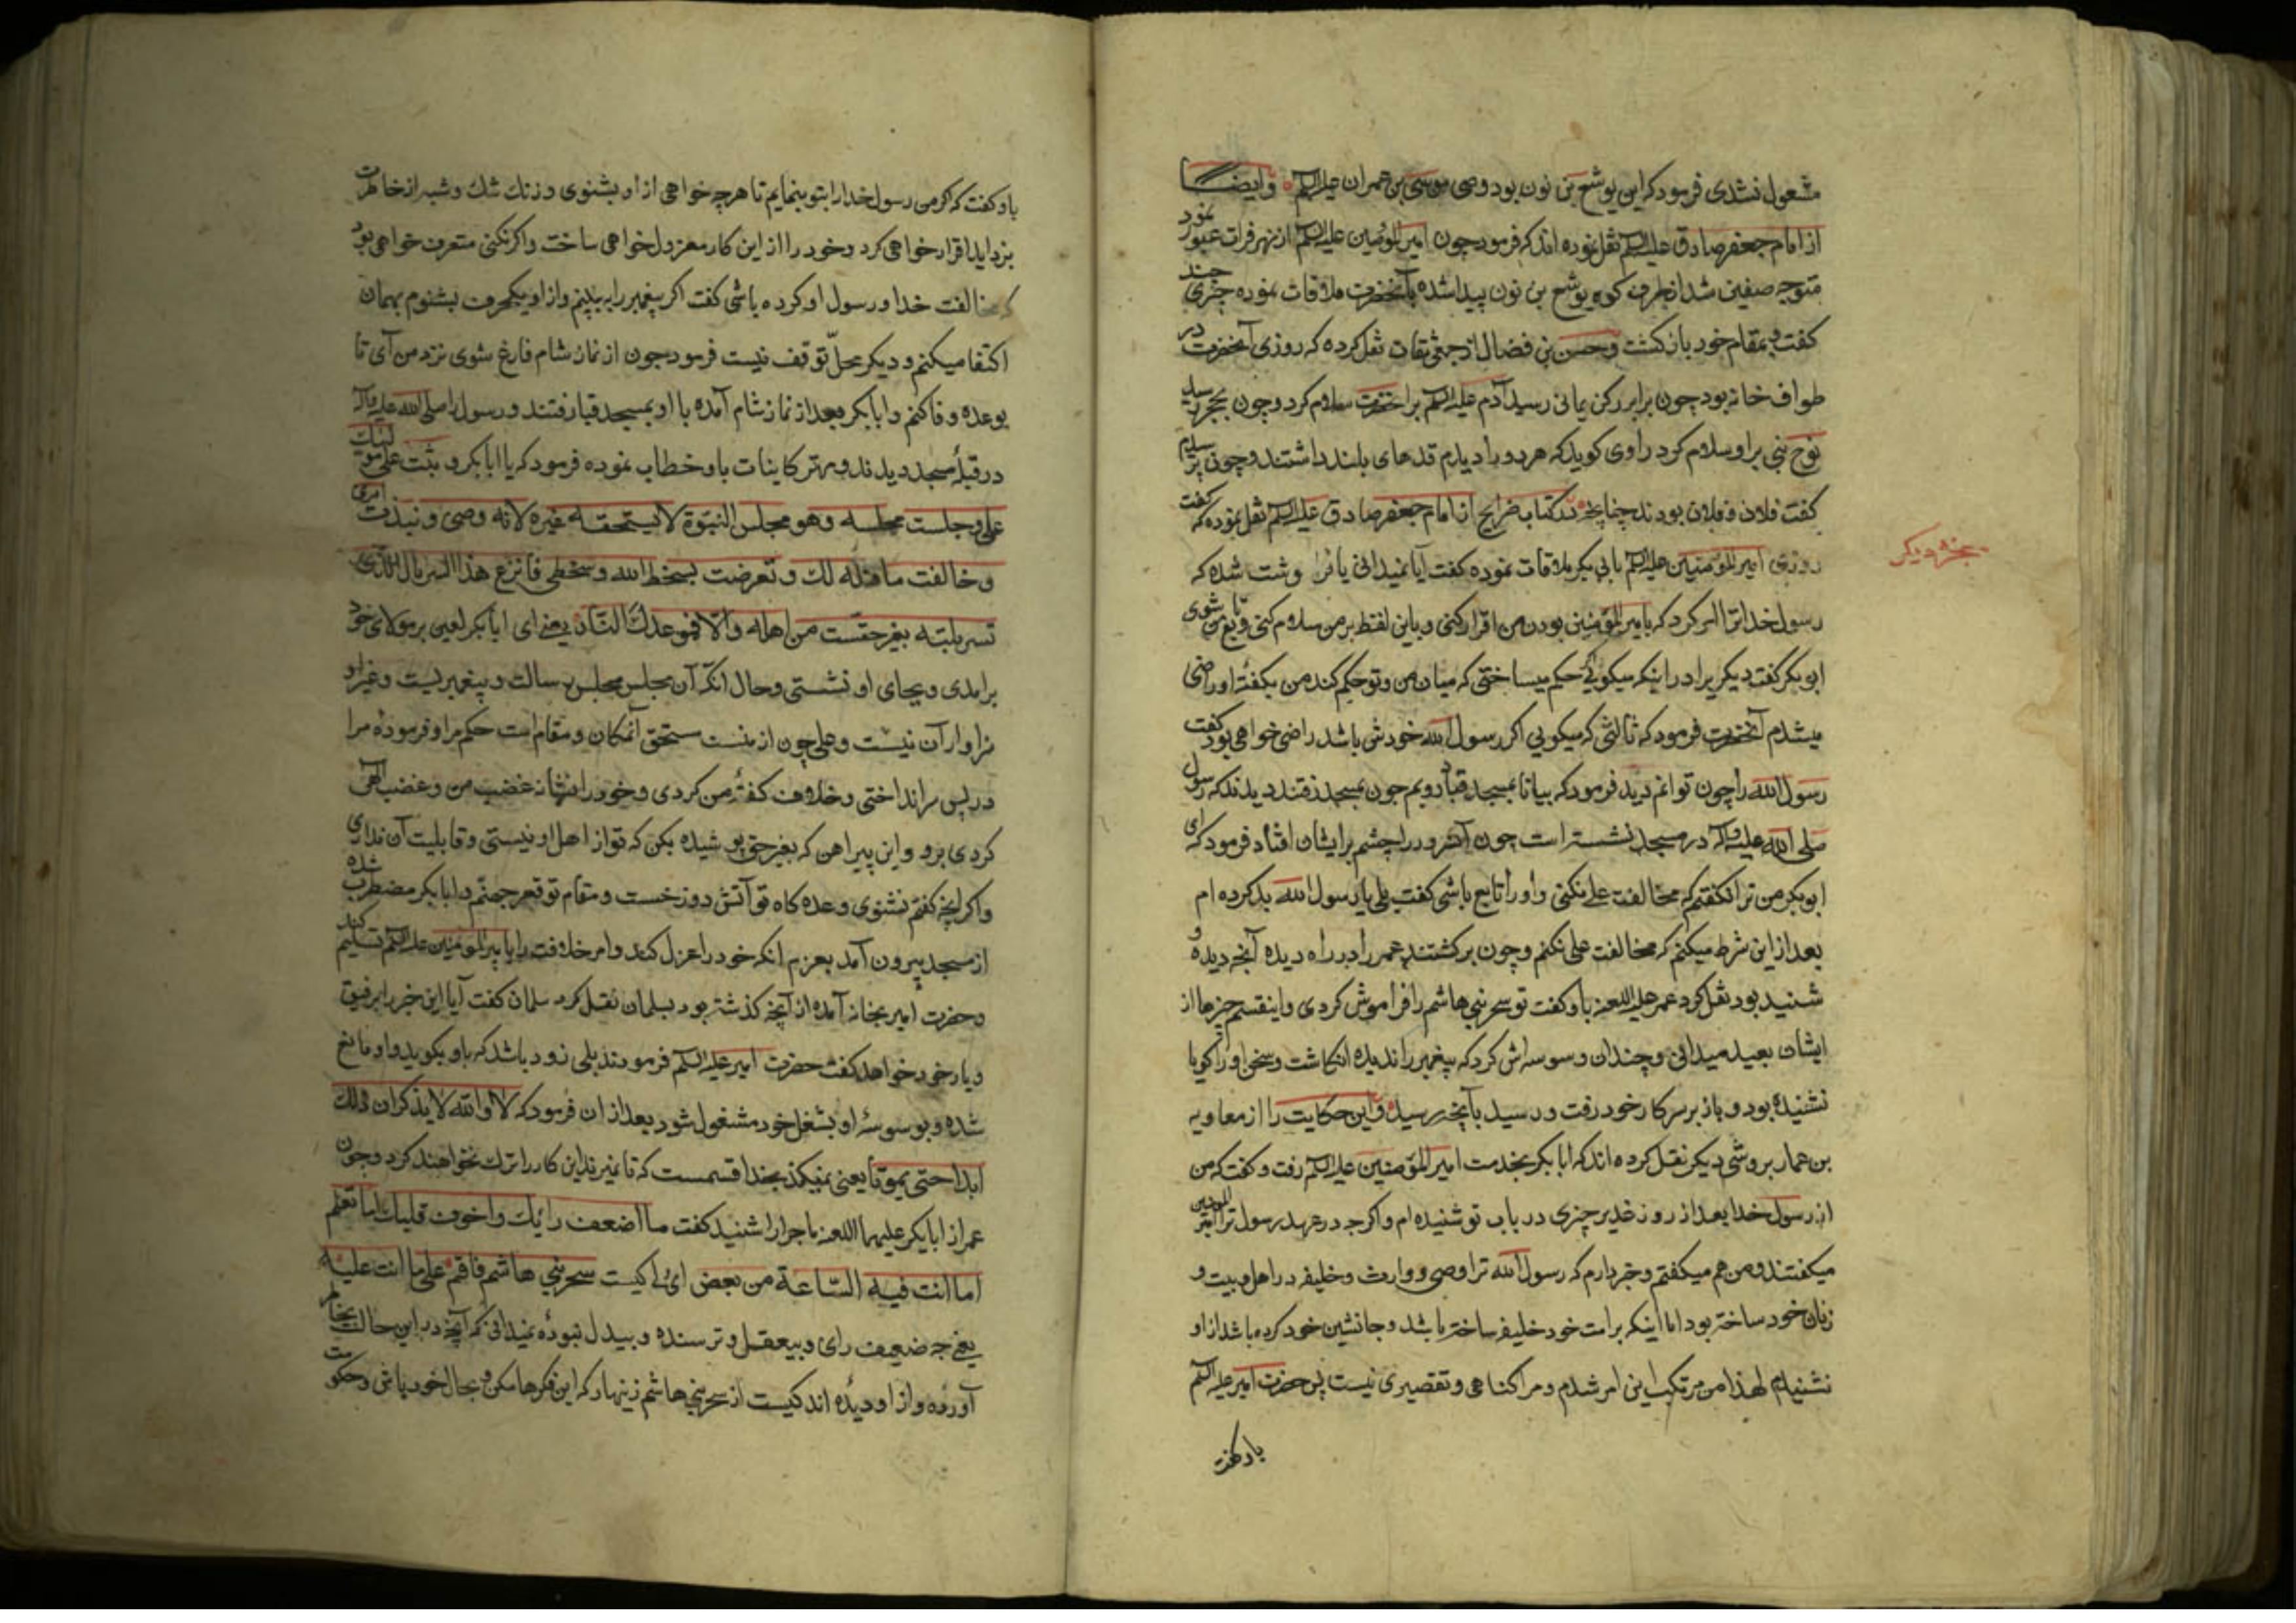 مشعول نشدی فرمود که این یوشع بن نون بود وصی موسی بن عمران علیه السلم وایضا
از امام جعفر صادق علیه السلم نقل نموده اند که فرمود چون امیر المؤمنین علیه السلم از نهر فرات عبور نمود
متوجه صفین شد از طرف کوه یوشع بن نون پیدا شده با آنحضرت ملاقات نموده چیزی چند
کفت و بمقام خود باز کشت وحسن بن فضال از جمعی ثقات نقل کرده که روزی آنحضرت در
طواف خانه بود چون برابر رکن یمانی رسید آدم علیه السلم بر آنحضرت سلام کرد و چون بحجر رسید
نوح نبی بر او سلام کرد راوی کوید که هر دو را دیدم قدهای بلند داشتند و چون پرسیدم
کفت فلان و فلان بودند چنانچه در کتاب خرایج از امام جعفر صادق علیه السلم نقل نموده که کفت
بخش دیکر
روزی امیر المؤمنین علیه السلم بابی بکر ملاقات نموده کفت آیا نمیدانی یا شده که
رسول خدا ترا امر کرد که بامیر المؤمنین بودن من اقرار کنی و باین لفظ بر من سلام کنی و تابع من شوی
ابو بکر کفت دیکر یرا در اینکه میکویی حکم میساختی که میان من و تو حکم کند من بکفتۀ او راضی
میشدم آنحضرت فرمود که ثالثی که میکویی اکر رسول الله خودش باشد راضی خواهی بود کفت
رسول الله را چون توانم دید فرمود که بیا تا بمسجد قبا رویم چون بمسجد رفتند دیدند که رسول
صلی الله علیه وآله در مسجد نشسته است چون آنسرور را چشم بر ایشان افتاد فرمود که ای
ابو بکر من ترا نکفتم که مخالفت علی نکنی و او را تابع باشی کفت بلی یا رسول الله بد کرده ام
بعد از این شرط میکنم که مخالفت علی نکنم و چون بر کشتند عمر را در راه دیده آنچه دیده و
شنید بود نقل کرد عمر علیه اللعنه باو کفت تو سحر بنی هاشم را فراموش کردی و اینقسم چیزها از
ایشان بعید میدانی و چندان وسوسه اش کرد که پیغمبر را ندیده انکاشت و سخن او را کویا
نشنیده بود و باز بر سر کار خود رفت و رسید بآنچه رسید و این حکایت را از معاویه
بن عمار بروشی دیکر نقل کرده اند که ابا بکر بخدمت امیر المؤمنین علیه السلم رفت و کفت که من
از رسول خدا بعد از روز غدیر چیزی در باب تو شنیده ام و اکر چه در عهد رسول ترا امیر المؤمنین
میکفتند و من هم میکفتم و خبر دارم که رسول الله ترا وصی و وارث و خلیفه در اهل بیت و
زنان خود ساخته بود اما اینکه بر امت خود خلیفه ساخته باشد و جانشین خود کرده باشد از او
نشنیدم لهذا من مرتکب این امر شدم و مرا کناهی و تقصیری نیست پس حضرت امیر علیه السلم
باو کفت
باو کفت که اکر من رسول خدا را بتو بنمایم تا هر چه خواهی از او بشنوی و زنك شك و شبه از خاطرت
بزداید اقرار خواهی کرد و خود را از این کار معزول خواهی ساخت و اکر نکنی معترف خواهی بود
که مخالفت خدا و رسول او کرده باشی کفت اکر پیغمبر را به بینم و از او یکحرف بشنوم بهمان
اکتفا میکنم و دیکر محلّ توقف نیست فرمود چون از نماز شام فارغ شوی نزد من آی تا
بوعده وفا کنم و ابا بکر بعد از نماز شام آمده با او بمسجد قبا رفتند و رسول را صلی الله علیه وآله
در قبلۀ مسجد دیدند و مهتر کاینات باو خطاب نموده فرمود که یا ابا بکر وثبت علی مولیك
علی وجلست مجلسه وهو مجلس النبوّة لا یستحقه غیره لانه وصی ونبذت امری
وخالفت ما قلته لك وتعرضت لسخط الله وسخطی فانزع هذا السربال الذی
تسربلته بغیر حقّ من اهله والا فموعدك النّار یعنی ای ابا بکر لعین بر مولای خود
بر امدی و بجای او نشستی و حال آنکه آن مجلس مجلس رسالت و پیغمبریست و غیر او
سزاوار آن نیست و علی چون از منست مستحق آنمکان و مقام است حکم مرا و فرموده مرا
در پس سر انداختی و خلاف کفتۀ من کردی و خود را نشانه غضب من و غضب الهی
کردی برو و این پیراهن که بغیر حق پوشیده بکن که تو از اهل او نیستی و قابلیت آن نداری
و اکر آنچه کفتم نشنوی وعده کاه تو آتش دوزخست و مقام تو قعر جهنّم و ابا بکر مضطرب شده
از مسجد بیرون آمد بعزم آنکه خود را عزل کند و امر خلافت را بامیر المؤمنین علیه السلم تسلیم کند
و حضرت امیر بخانه آمده از آنچه کذشته بود بسلمان نقل کرد سلمان کفت آیا این خبر را برفیق
و یار خود خواهد کفت حضرت امیر علیه السلم فرمودند بلی زود باشد که باو بکوید و او مانع
شده و بوسوسۀ او بشغل خود مشغول شود بعد از ان فرمود که لا والله لا یذکران ذلك
ابدا حتی یموتا یعنی نمیکنند بخدا قسمست که تا نمیرند این کار را ترك نخواهند کرد و چون
عمر از ابا بکر علیهما اللعنه ماجرا را شنید کفت ما اضعف رایك واخوف قلبك اما تعلم
اما انت فیه السّاعة من بعض سحر بنی هاشم فاقم علی ما انت علیه
یعنی چه ضعیف رای و بیعقل و ترسنده و بیدل نبوده نمیدانی که آنچه در این حالت بخاطر
آورده و از او دیده اندکیست از سحر بنی هاشم زینهار که این فکرها مکن و بحال خود باش و حکومت